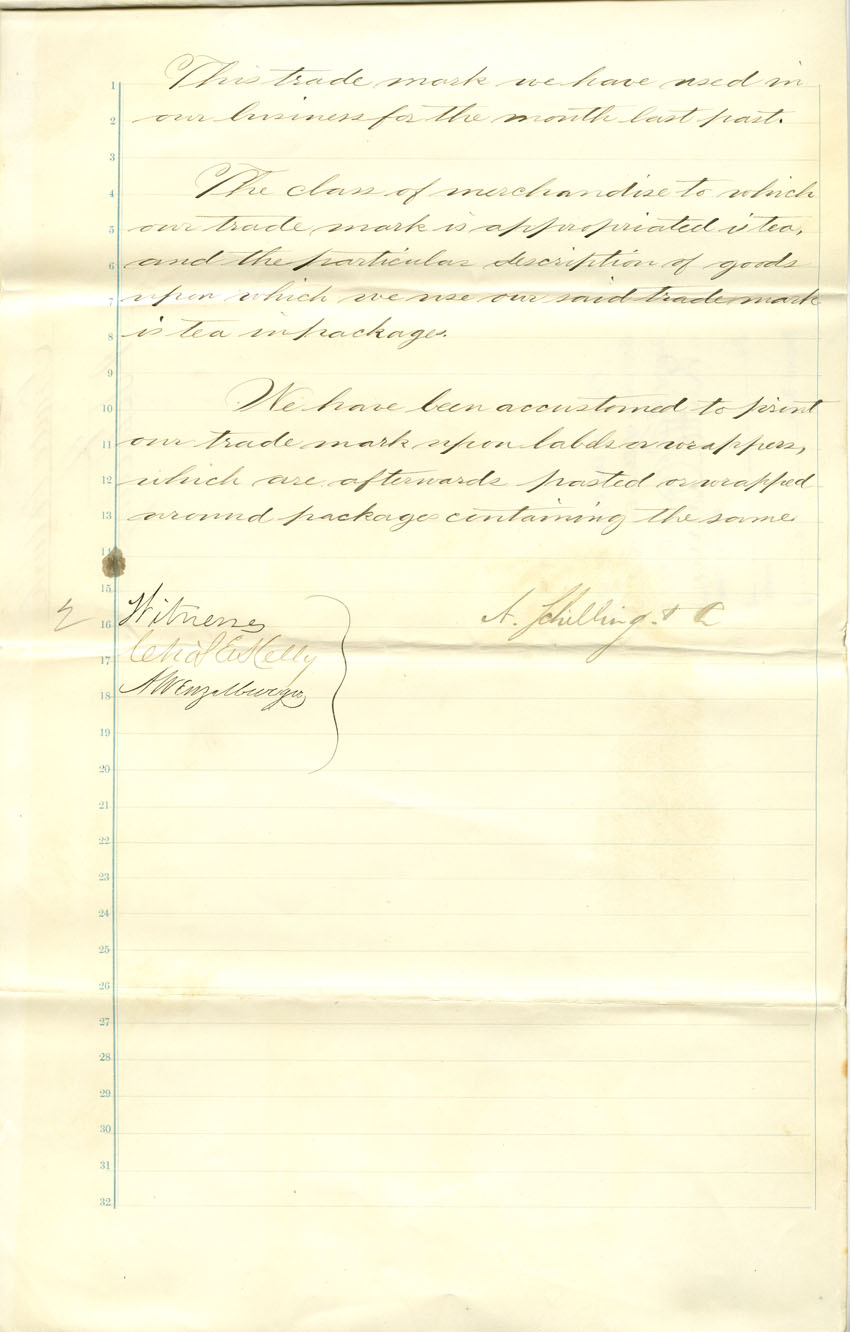 This trade mark we have used in
our business for the month last past.
The class of merchandise to which
our trade mark is appropriated is tea,
and the particular description of goods
upon which we use our said trade mark
is tea in packages.
We have been accustomed to print
our trade mark upon labels or wrappers,
which are afterwards pasted or wrapped
around packages containing the same.
Witnesses
A. Schilling & Co
Chas E. Kelly
1
2
3
4
5
6
7
8
9
10
11
12
13
14
15
16
17
18
19
20
21
22
23
24
25
26
27
28
29
30
31
32